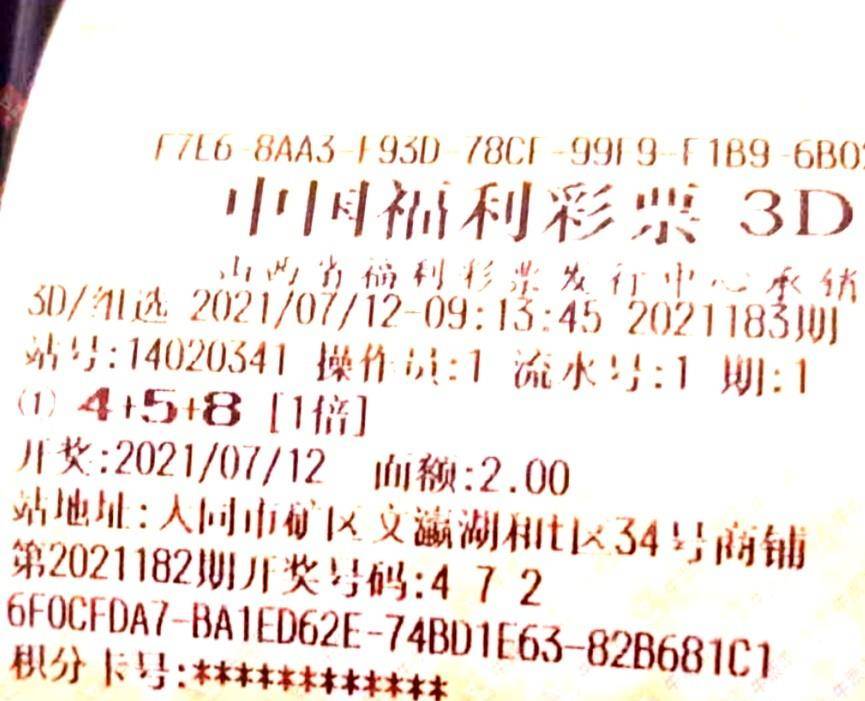 F7E6-8AA3-F93D-78CF-99F9-F1B9-6B0
中国福利彩票 3D
山西省福利彩票发行中心承销
3D/组选 2021/07/12-09:13:45 2021183期
站号:14020341 操作员:1 流水号:1 期:1
(1) 4+5+8 [1倍]
开奖:2021/07/12 面额:2.00
站地址:大同市矿区文瀛湖和社区34号商铺
第2021182期开奖号码:4 7 2
6F0CFDA7-BA1ED62E-74BD1E63-82B681C1
积分卡号:************